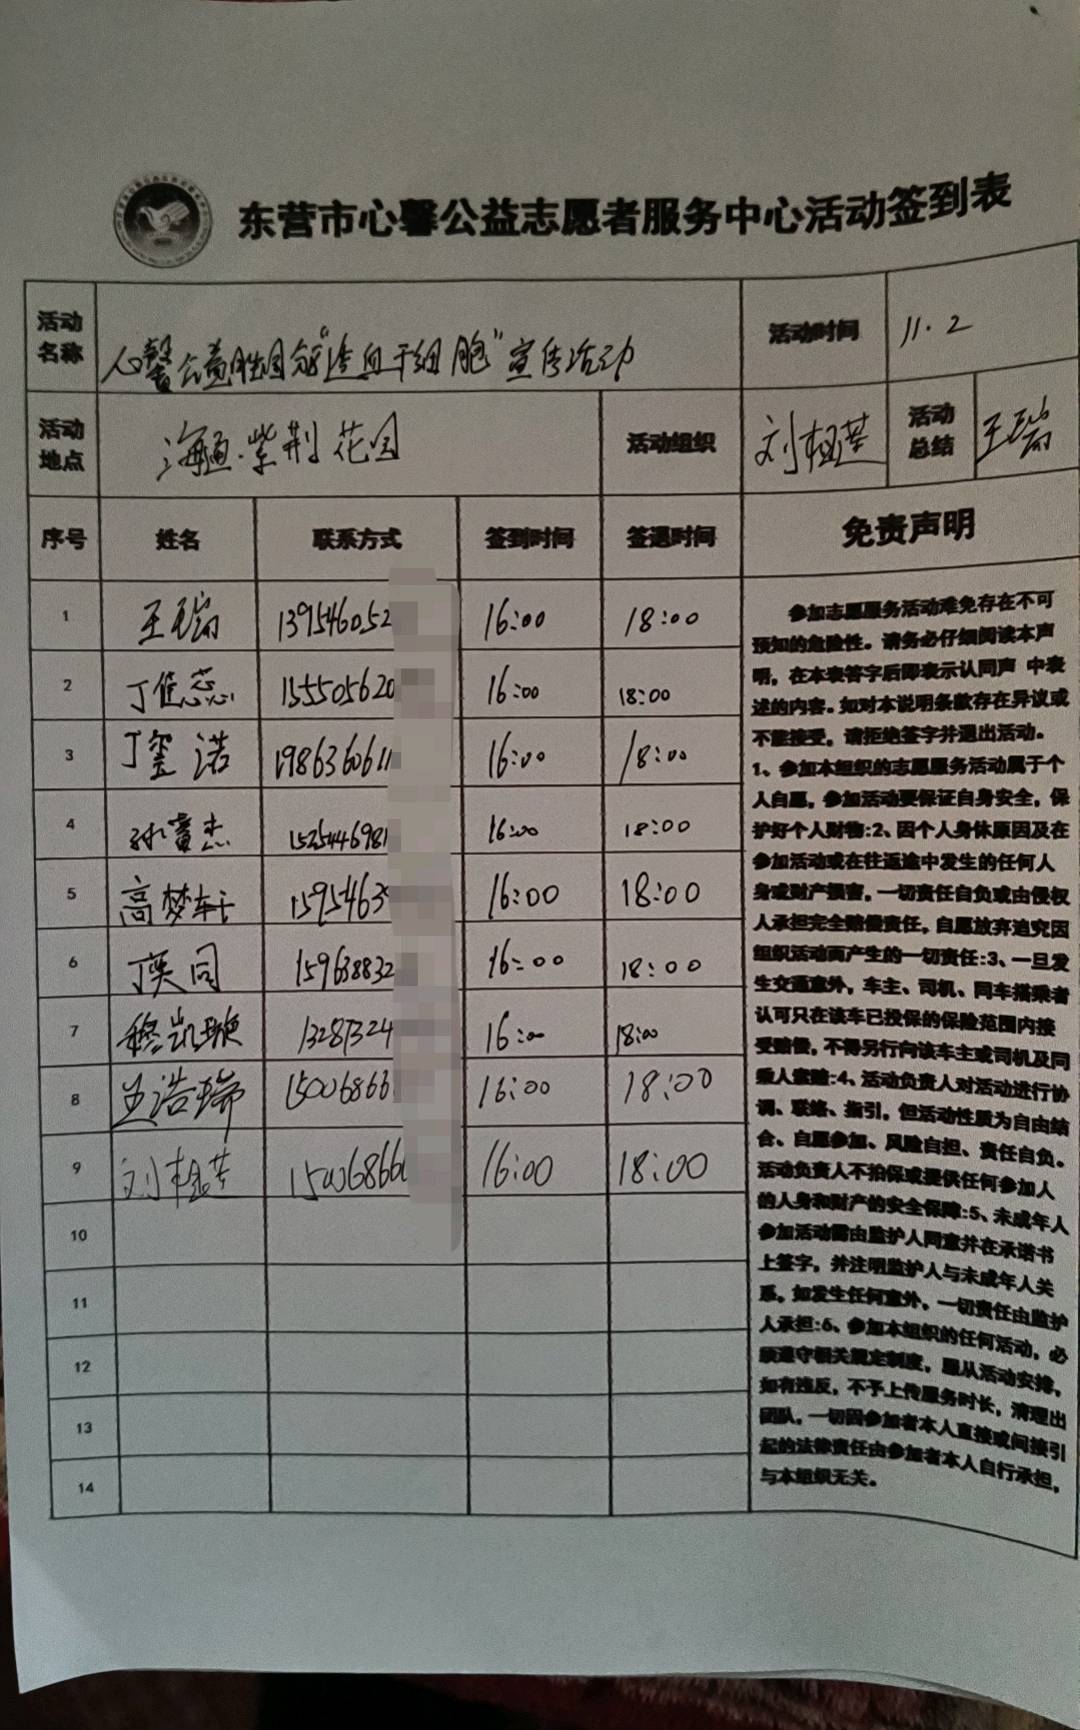 东营市心馨公益志愿者服务中心活动签到表
活动名称 心馨公益胜园分部"造血干细胞"宣传活动 活动时间 11.2
活动地点 海通·紫荆花园 活动组织 活动总结 王瑞
序号 姓名 联系方式 签到时间 签退时间 免责声明
1 王瑞 139546052 16:00 18:00
2 丁佳蕊 155505620 16:00 18:00
3 丁玺诺 198636061 16:00 18:00
4 1525446981 16:00 18:00
5 高梦轩 15954635 16:00 18:00
6 丁奕同 159638832 16:00 18:00
7 穆凯璇 13287324 16:00 18:00
8 王浩瑞 150068663 16:00 18:00
9 150068666 16:00 18:00
10
11
12
13
14
参加志愿服务活动难免存在不可
预知的危险性。请务必仔细阅读本声
明，在本表签字后即表示认同声 中表
述的内容。如对本说明条款存在异议或
不能接受，请拒绝签字并退出活动。
1、参加本组织的志愿服务活动属于个
人自愿，参加活动要保证自身安全，保
护好个人财物:2、因个人身体原因及在
参加活动或在往返途中发生的任何人
身或财产损害，一切责任自负或由侵权
人承担完全赔偿责任，自愿放弃追究因
组织活动而产生的一切责任:3、一旦发
生交通意外，车主、司机、同车搭乘者
认可只在该车已投保的保险范围内接
受赔偿，不得另行向该车主或司机及同
乘人索赔:4、活动负责人对活动进行协
调、联络、指引，但活动性质为自由结
合、自愿参加、风险自担、责任自负。
活动负责人不担保或提供任何参加人
的人身和财产的安全保障:5、未成年人
参加活动需由监护人同意并在承诺书
上签字，并注明监护人与未成年人关
系，如发生任何意外，一切责任由监护
人承担:6、参加本组织的任何活动，必
须遵守相关规定制度，服从活动安排，
如有违反，不予上传服务时长，清理出
团队，一切因参加者本人直接或间接引
起的法律责任由参加者本人自行承担，
与本组织无关。